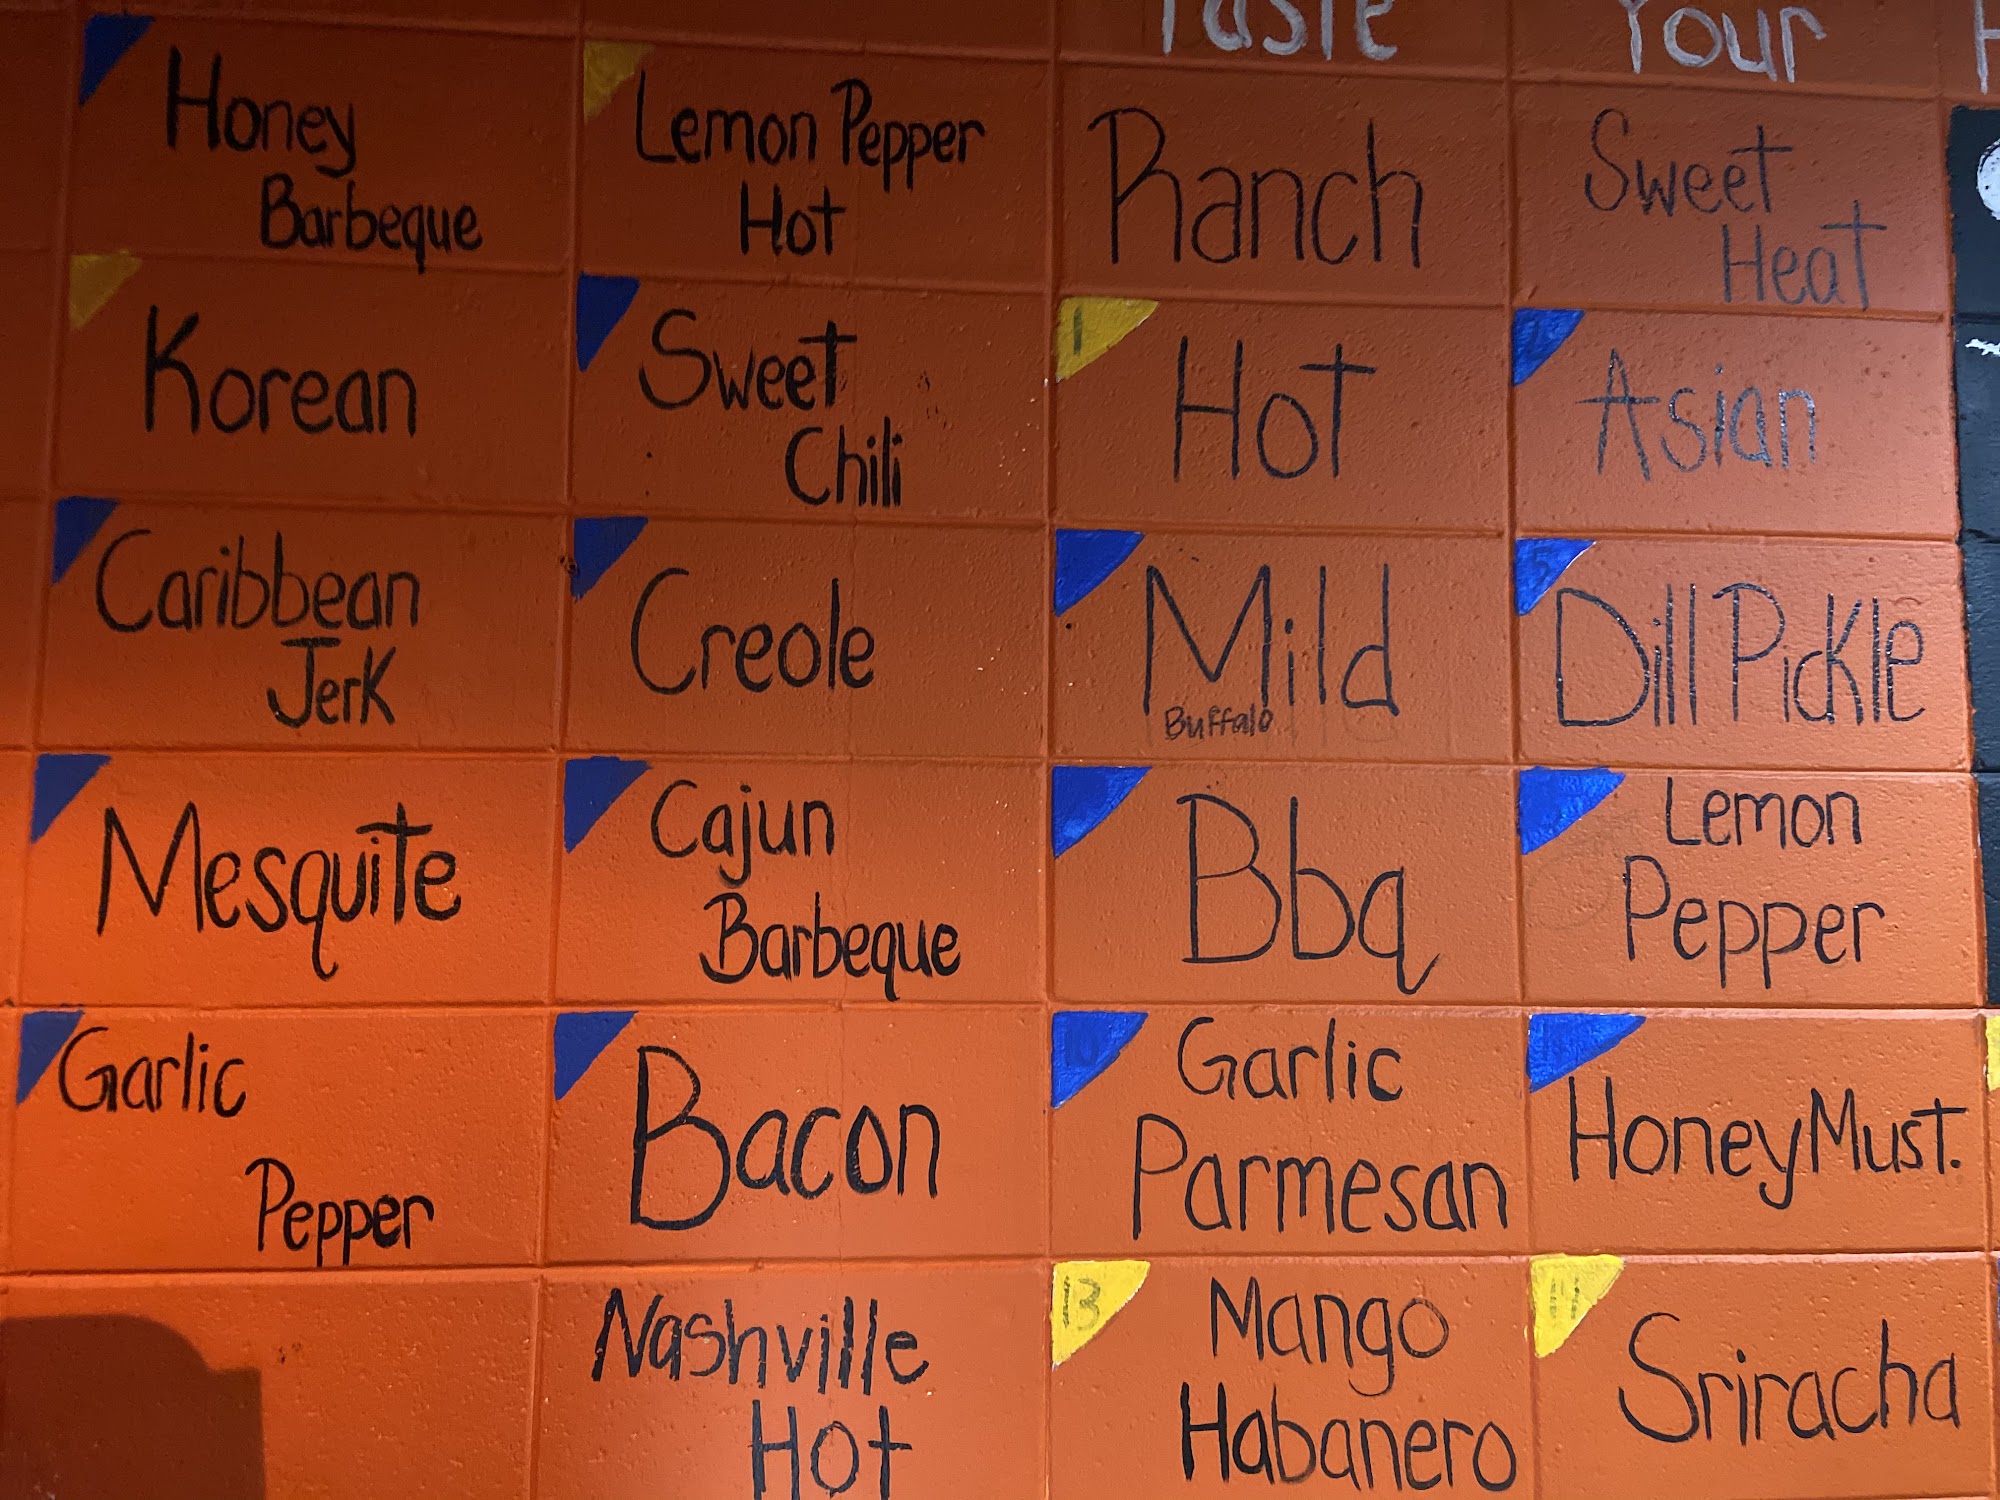 Taste Your
Honey
Barbeque
Lemon Pepper
Hot
Ranch
Sweet
Heat
Korean
Sweet
Chili
1
Hot
Asian
Caribbean
Jerk
Creole
Mild
Buffalo
5
Dill Pickle
Mesquite
Cajun
Barbeque
Bbq
Lemon
Pepper
Garlic
Pepper
Bacon
10
Garlic
Parmesan
Honey Must.
Nashville
Hot
13
Mango
Habanero
14
Sriracha